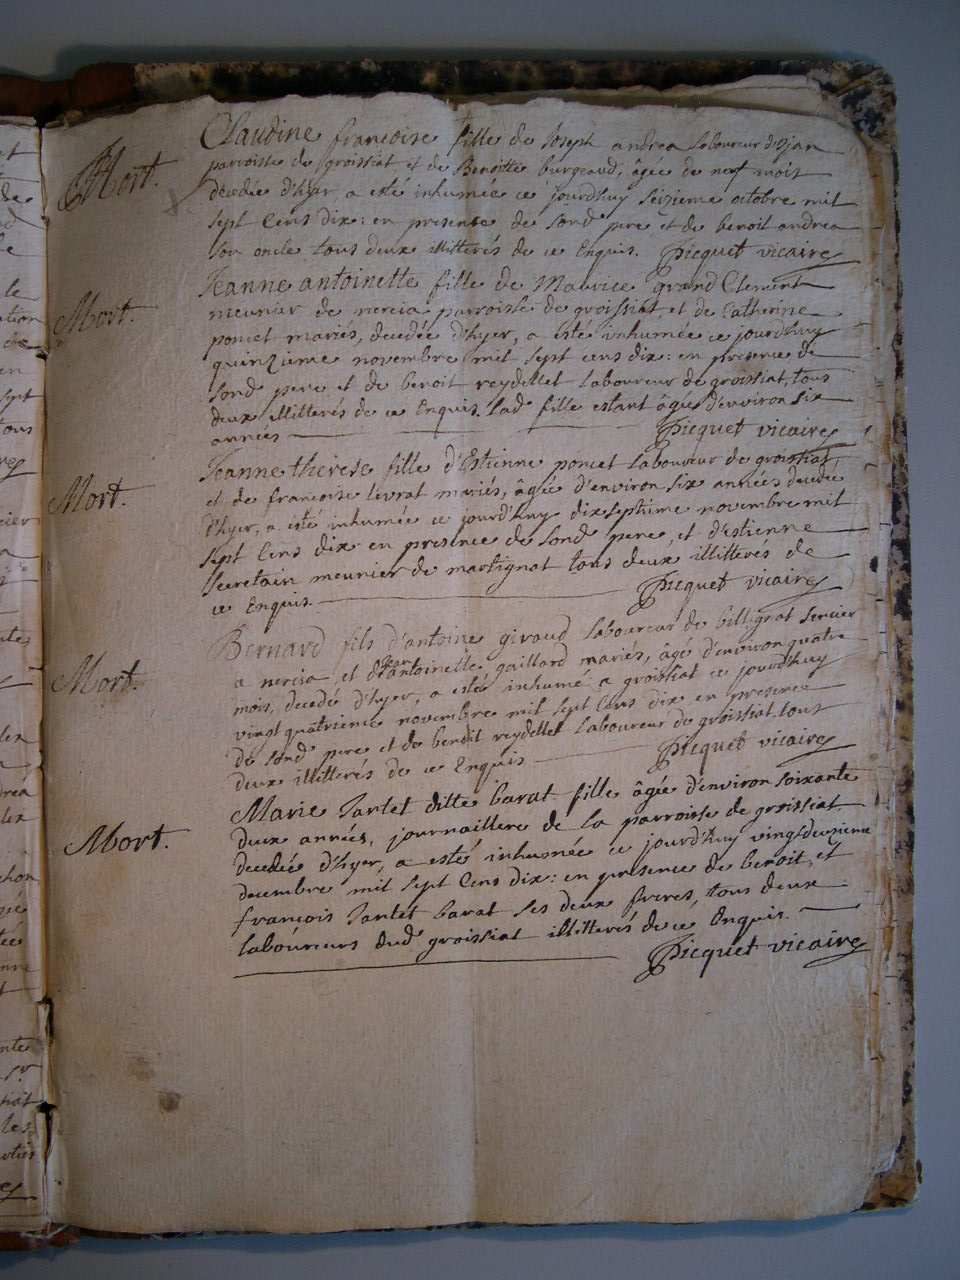 Mort.
Claudine francoise fille de Joseph andrea laboureur d'Ijan
parroisse de groissiat et de Benoitte burgeaud, âgée de neuf mois
decedée d'hyer, a esté inhumée ce jourd'huy seizieme octobre mil
sept Cens dix: en presence de sond pere et de benoit andrea
son oncle tous deux illitterés de ce Enquis. Picquet vicaire
Mort.
Jeanne antoinette fille de Maurice grand Clement
meunier de nercia parroisse de groissiat, et de Catherine
poncet mariés, decedée d'hyer, a esté inhumée ce jourd'huy
quinzieme novembre mil sept cens dix: en presence de
sond pere et de benoit reydellet laboureur de groissiat, tous
deux illitterés de ce Enquis, lad fille estant âgée d'environ six
années Picquet vicaire
Mort.
Jeanne therese fille d'Estienne poncet laboureur de groissiat,
et de francoise livrat mariés, âgée d'environ six années decedée
d'hyer, a esté inhumée ce jourd'huy dixseptieme novembre mil
sept Cens dix en presence de sond pere, et d'estienne
secretain meunier de martignat tous deux illitteres de
ce Enquis. Picquet vicaire
Mort.
Bernard fils d'antoine giraud laboureur de billignat
a nercia, et d'antoinette gaillard mariés, âgé d'environ quatre
mois, decedé d'hyer, a esté inhumé a groissiat ce jourd'huy
vingt quatrieme novembre mil sept Cens dix en presence
de sond pere et de benoit reydellet laboureur de groissiat tous
deux illitterés de ce Enquis Picquet vicaire
Mort.
Marie Tartet ditte barat fille âgée d'environ soixante
deux années, journailliere de la parroisse de groissiat
decedée d'hyer, a esté inhumée ce jourd'huy vingtdeuxieme
decembre mil sept Cens dix: en presence de benoit, et
françois Tartet barat ses deux freres, tous deux
laboureurs dud groissiat illitterés de ce Enquis.
Picquet vicaire